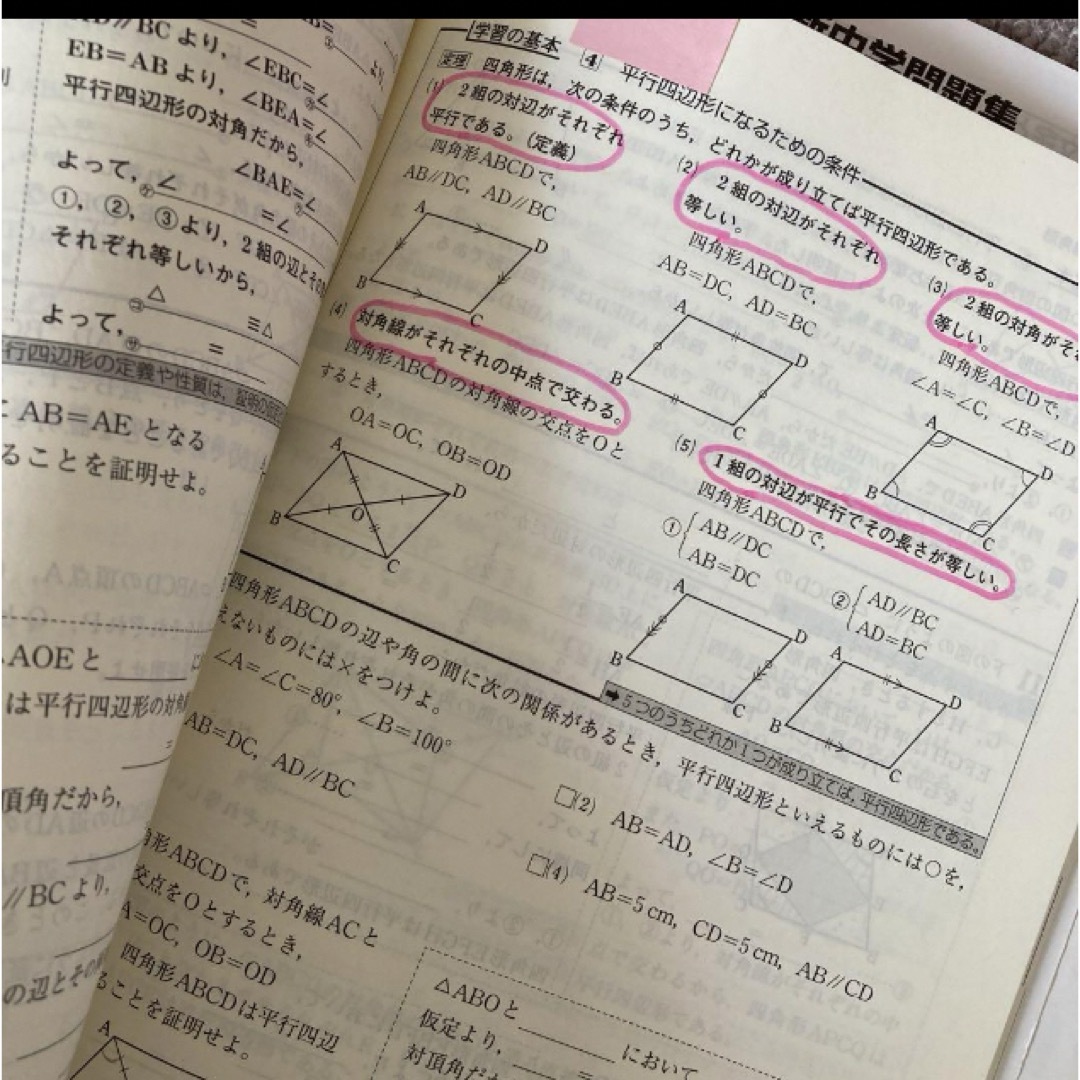 新中学問題集
AD//BCより, ∠EBC=∠
EB=ABより, ∠BEA=∠
平行四辺形の対角だから,
∠BAE=∠
よって, ∠ =∠
①, ②, ③より, 2組の辺とその
それぞれ等しいから,
△ ≡△
よって, =
行四辺形の定義や性質は, 証明の
AB=AEとなる
ることを証明せよ。
AOEと
は平行四辺形の対角
=
頂角だから,
//BCより,
の辺とその
学習の基本 4 平行四辺形になるための条件
定理 四角形は, 次の条件のうち, どれかが成り立てば平行四辺形である。
(1) 2組の対辺がそれぞれ
平行である。(定義)
四角形ABCDで,
AB//DC, AD//BC
A
D
B
C
(2) 2組の対辺がそれぞれ
等しい。
四角形ABCDで,
AB=DC, AD=BC
A
D
B
C
(3) 2組の対角がそれ
等しい。
四角形ABCDで,
∠A=∠C, ∠B=∠D
A
D
B
C
(4) 対角線がそれぞれの中点で交わる。
四角形ABCDの対角線の交点をOと
するとき,
OA=OC, OB=OD
A
D
O
B
C
(5) 1組の対辺が平行でその長さが等しい。
四角形ABCDで,
① AB//DC
AB=DC
A
D
B
C
② AD//BC
AD=BC
A
D
B
C
➡5つのうちどれか1つが成り立てば, 平行四辺形である。
四角形ABCDの辺や角の間に次の関係があるとき, 平行四辺形といえるものには○を,
えないものには×をつけよ。
∠A=∠C=80°, ∠B=100°
□(2) AB=AD, ∠B=∠D
AB=DC, AD//BC
□(4) AB=5cm, CD=5cm, AB//CD
角形ABCDで, 対角線ACと
交点をOとするとき,
A=OC, OB=OD
四角形ABCDは平行四辺
ることを証明せよ。
A
△ABOと において
仮定より, =
対頂角だか